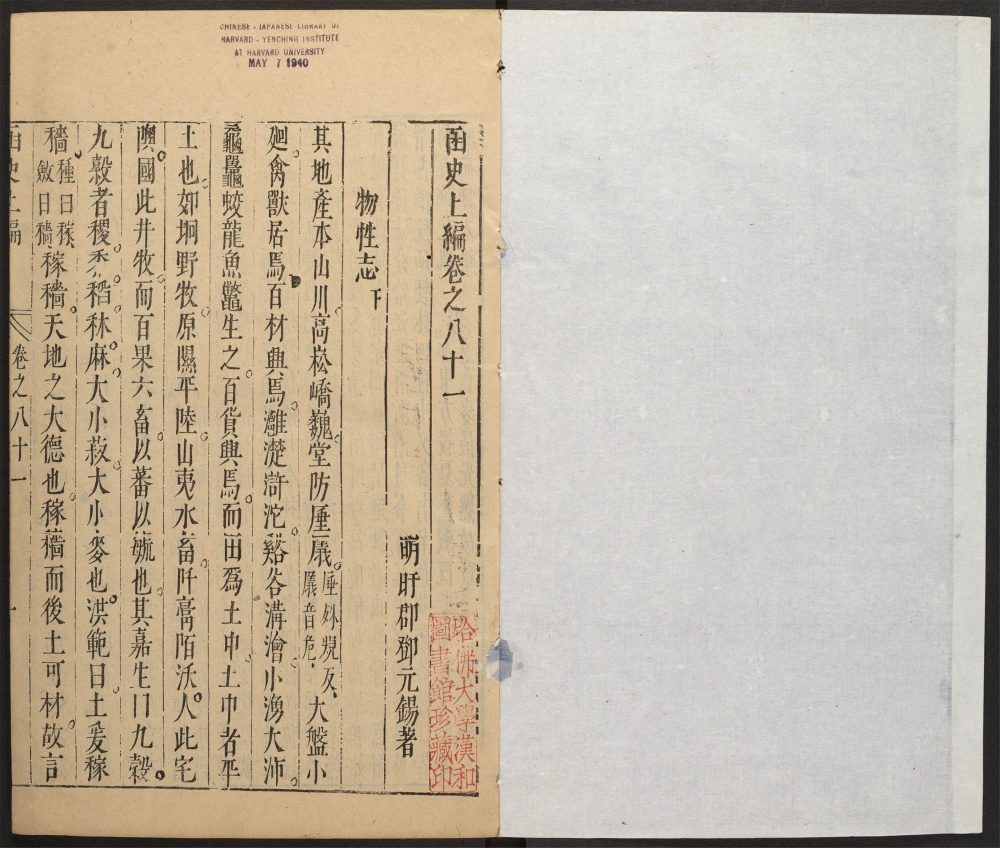 CHINESE - JAPANESE LIBRARY OF
HARVARD - YENCHING INSTITUTE
AT HARVARD UNIVERSITY
MAY 7 1940
函史上編卷之八十一
哈佛大學漢和
圖書館珍藏印
明盱郡鄧元錫著
物性志下
其地產本山川高崧嶠巍堂防厜㕒厜姊規反㕒音危大盤小
廻禽獸居焉百材興焉灉濋滸沱谿谷溝澮小湧大沛
龜鼉蛟龍魚鼈生之百貨興焉而田為土中土中者平
土也如坰野牧原隰平陸山夷水畜阡膏陌沃人此宅
隩國此井牧而百果六畜以蕃以毓也其嘉生曰九穀
九穀者稷黍稻秫麻大小菽大小麥也洪範曰土爰稼
穡種曰稼斂曰穡稼穡天地之大德也稼穡而後土可材故言
函史上編
卷之八十一
一